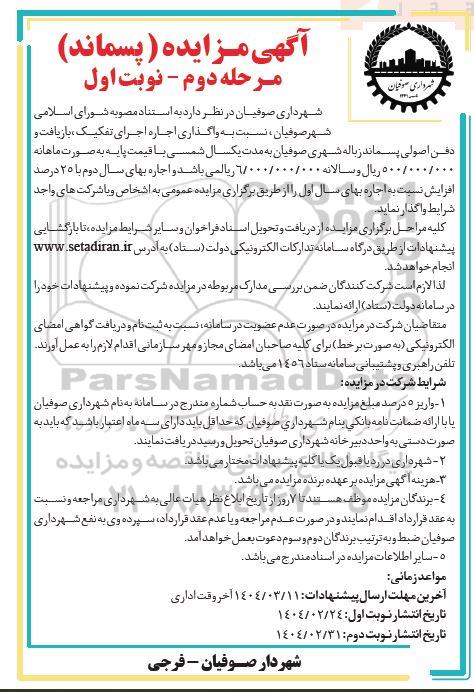 آگهی مزایده (پسماند)
مرحله دوم - نوبت اول
شهرداری صوفیان
شهرداری صوفیان در نظر دارد به استناد مصوبه شورای اسلامی
شهر صوفیان، نسبت به واگذاری اجاره اجرای تفکیک، بازیافت و
دفن اصولی پسماند زباله شهری صوفیان به مدت یکسال شمسی با قیمت پایه به صورت ماهانه
۵۰۰/۰۰۰/۰۰۰ ریال و سالانه ۶/۰۰۰/۰۰۰/۰۰۰ ریالمی باشد و اجاره بهای سال دوم با ۲۵ درصد
افزایش نسبت به اجاره بهای سال اول را از طریق برگزاری مزایده عمومی به اشخاص ویا شرکت های واجد
شرایط واگذار نماید.
کلیه مراحل برگزاری مزایده از دریافت و تحویل اسناد فراخوان و سایر شرایط مزایده، تا بازگشایی
پیشنهادات از طریق درگاه سامانه تدارکات الکترونیکی دولت (ستاد) به آدرس www.setadiran.ir
انجام خواهد شد.
لذا لازم است شرکت کنندگان ضمن بررسی مدارک مربوطه در مزایده شرکت نموده و پیشنهادات خود را
در سامانه دولت (ستاد) ارائه نمایند.
متقاضیان شرکت در مزایده در صورت عدم عضویت در سامانه، نسبت به ثبت نام و دریافت گواهی امضای
الکترونیکی (به صورت برخط) برای کلیه صاحبان امضای مجاز و مهر سازمانی اقدام لازم را به عمل آورند.
تلفن راهبری و پشتیبانی سامانه ستاد ۱۴۵۶ می باشد.
شرایط شرکت در مزایده:
۱- واریز ۵ درصد مبلغ مزایده به صورت نقد به حساب شماره مندرج در سامانه به نام شهرداری صوفیان
یا با ارائه ضمانت نامه بانکی بنام شهرداری صوفیان که حداقل باید دارای سه ماه اعتبار باشد که باید به
صورت دستی به واحد دبیرخانه شهرداری صوفیان تحویل و رسید دریافت نمایند.
۲- شهرداری در رد یا قبول یک یا کلیه پیشنهادات مختار می باشد.
۳- هزینه آگهی مزایده بر عهده برنده مزایده می باشد.
۴- برندگان مزایده موظف هستند تا ۷ روز از تاریخ ابلاغ نظر هیات عالی به شهرداری مراجعه و نسبت
به عقد قرارداد اقدام نمایند و در صورت عدم مراجعه و یا عدم عقد قرارداد، سپرده وی به نفع شهرداری
صوفیان ضبط و به ترتیب برندگان دوم و سوم دعوت بعمل خواهد آمد.
۵- سایر اطلاعات مزایده در اسناد مندرج می باشد.
مواعد زمانی:
آخرین مهلت ارسال پیشنهادات: ۱۴۰۴/۰۳/۱۱ آخر وقت اداری
تاریخ انتشار نوبت اول: ۱۴۰۴/۰۲/۲۴
تاریخ انتشار نوبت دوم: ۱۴۰۴/۰۲/۳۱
شهردار صوفیان - فرجی